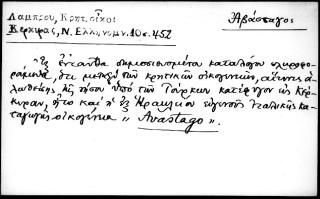 Λαμπρου, Κρητ. οἶκοι
Κερκυρας, Ν. Ελλ/νομν. 10 σ. 452
Ἀβάσταγος
Ἐκ ἐνταῦθα δημοσιευομένου καταλόγου πληροφο-
ρούμεθα, ὅτι μεταξὺ τῶν κρητικῶν οἰκογενειῶν, αἵτινες
τῆς νήσου ὑπὸ τῶν Τούρκων κατέφυγον εἰς Κέρ-
κυραν, ἦτο καὶ ἡ ἐξ Ἡρακλείου εὐγενὴς Ἰταλικῆς κα-
ταγωγῆς οἰκογένεια "Avastago".